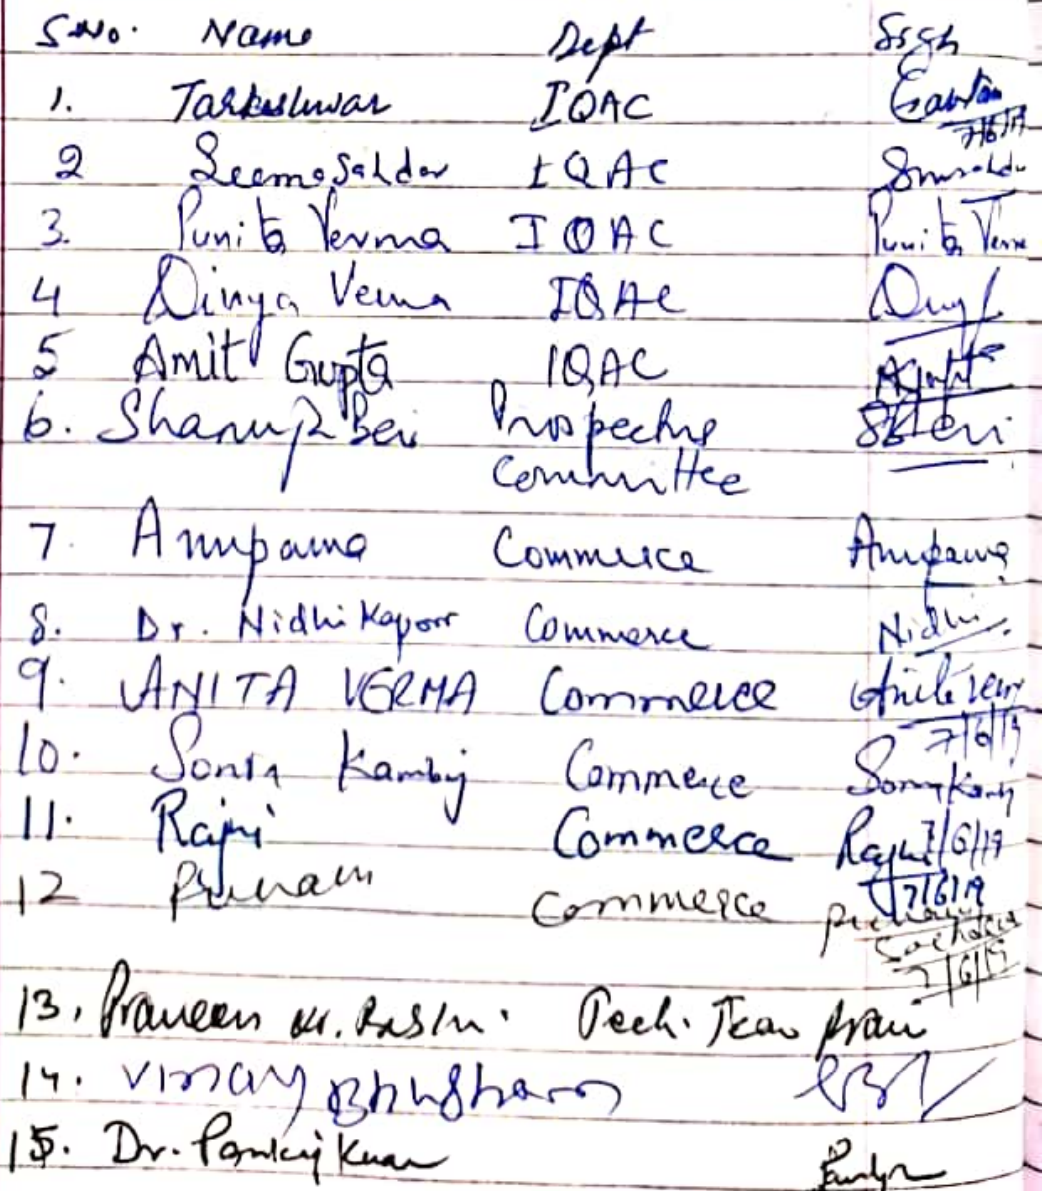 S.No. Name Dept Sign
1. Tarkeshwar IQAC
7/6/19
2 Seema Sahdev IQAC
3. Punita Verma IQAC Punita Verma
4 Divya Verma IQAC
5 Amit Gupta IQAC
6. Beri Prospectus
Committee
7. Anupama Commerce Anupama
8. Dr. Nidhi Kapoor Commerce Nidhi
9. ANITA VERMA Commerce Anita Verma
7/6/19
10. Sonia Kamboj Commerce
7/6/19
11. Rajni Commerce Rajni
7/6/19
12 Punam Commerce Punam
Sachdeva
7/6/19
13. Praveen Kr. Tech. Team
14. Vinay Bhushan
15. Dr. Pankaj Kumar